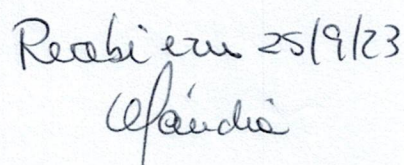 Recebi em 25/9/23
Cláudia